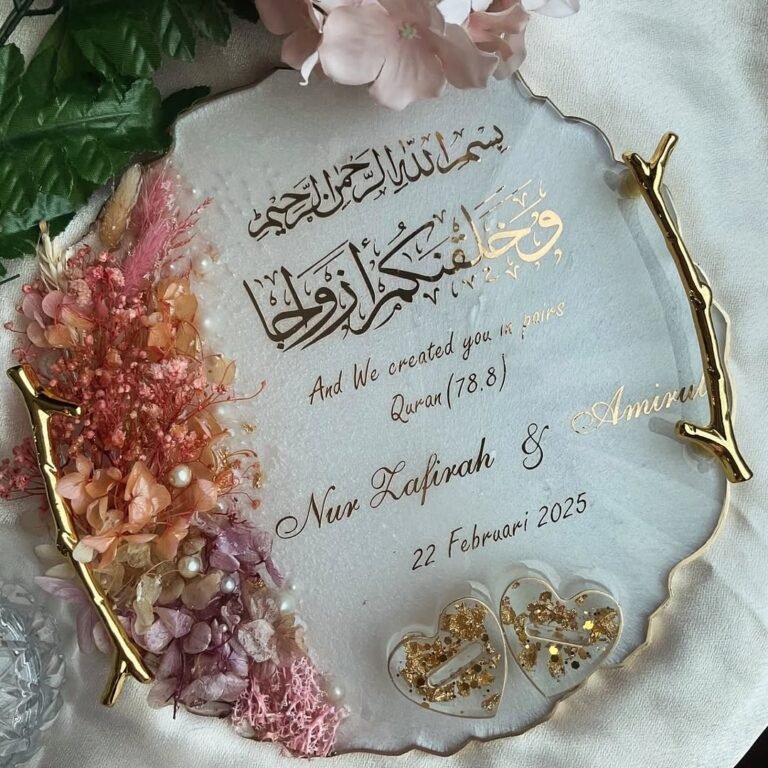 بسم الله الرحمن الرحيم
وخلقنكم أزواجا
And We created you in pairs
Quran(78.8)
Nur Zafirah & Amirul
22 Februari 2025